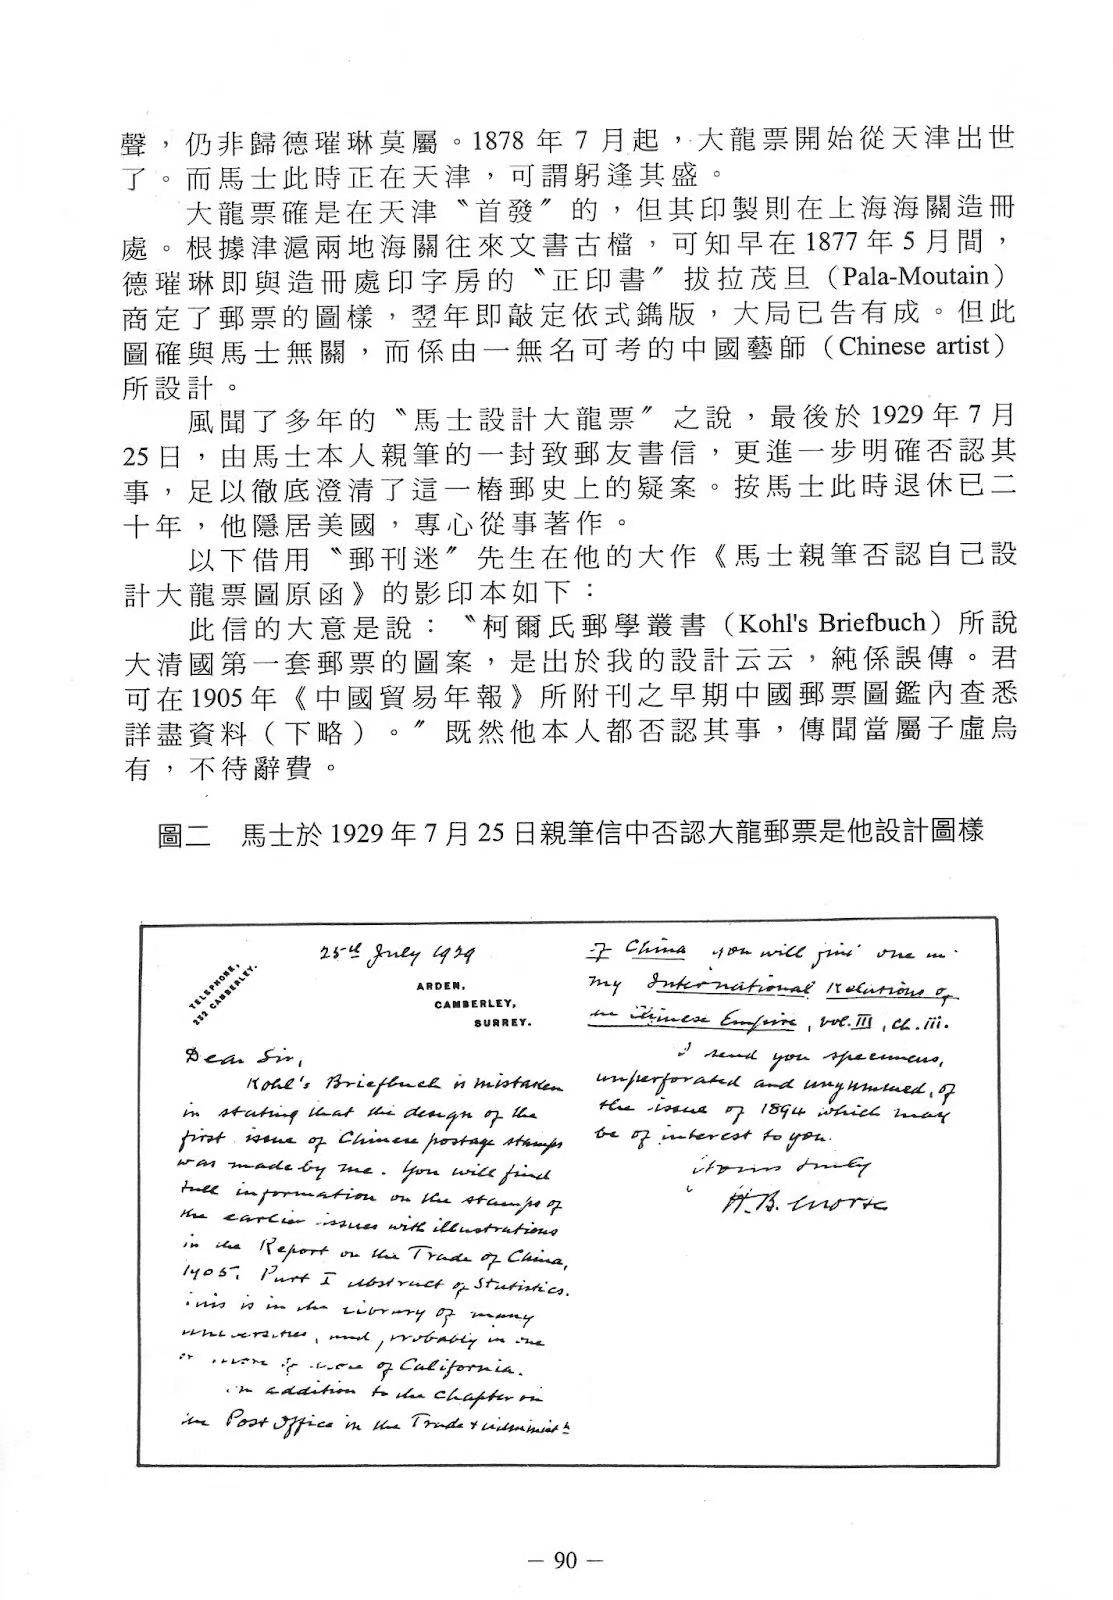 聲，仍非歸德璀琳莫屬。1878 年 7 月起，大龍票開始從天津出世
了。而馬士此時正在天津，可謂躬逢其盛。
大龍票確是在天津〝首發〞的，但其印製則在上海海關造冊
處。根據津滬兩地海關往來文書古檔，可知早在 1877 年 5 月間，
德璀琳即與造冊處印字房的〝正印書〞拔拉茂旦（Pala-Moutain）
商定了郵票的圖樣，翌年即敲定依式鐫版，大局已告有成。但此
圖確與馬士無關，而係由一無名可考的中國藝師（Chinese artist）
所設計。
風聞了多年的〝馬士設計大龍票〞之說，最後於 1929 年 7 月
25 日，由馬士本人親筆的一封致郵友書信，更進一步明確否認其
事，足以徹底澄清了這一樁郵史上的疑案。按馬士此時退休已二
十年，他隱居美國，專心從事著作。
以下借用〝郵刊迷〞先生在他的大作《馬士親筆否認自己設
計大龍票圖原函》的影印本如下：
此信的大意是說：〝柯爾氏郵學叢書（Kohl's Briefbuch）所說
大清國第一套郵票的圖案，是出於我的設計云云，純係誤傳。君
可在 1905 年《中國貿易年報》所附刊之早期中國郵票圖鑑內查悉
詳盡資料（下略）。〞既然他本人都否認其事，傳聞當屬子虛烏
有，不待辭費。
圖二　馬士於 1929 年 7 月 25 日親筆信中否認大龍郵票是他設計圖樣
TELEPHONE,
232 CAMBERLEY.
25th July 1929
ARDEN,
CAMBERLEY,
SURREY.
Dear Sir,
Kohl's Briefbuch is mistaken
in stating that the design of the
first issue of Chinese postage stamps
was made by me. You will find
full information on the stamps of
the earlier issues with illustrations
in the Report on the Trade of China,
1905. Part I Abstract of Statistics.
This is in the library of many
universities, and probably in one
or more of those of California.
In addition to the chapter on
the Post Office in the Trade & Administn
of China you will find one in
my International Relations of
the Chinese Empire, vol. III, ch. iii.
I send you specimens,
unperforated and ungummed, of
the issue of 1894 which may
be of interest to you.
Yours truly
H. B. Morse
— 90 —